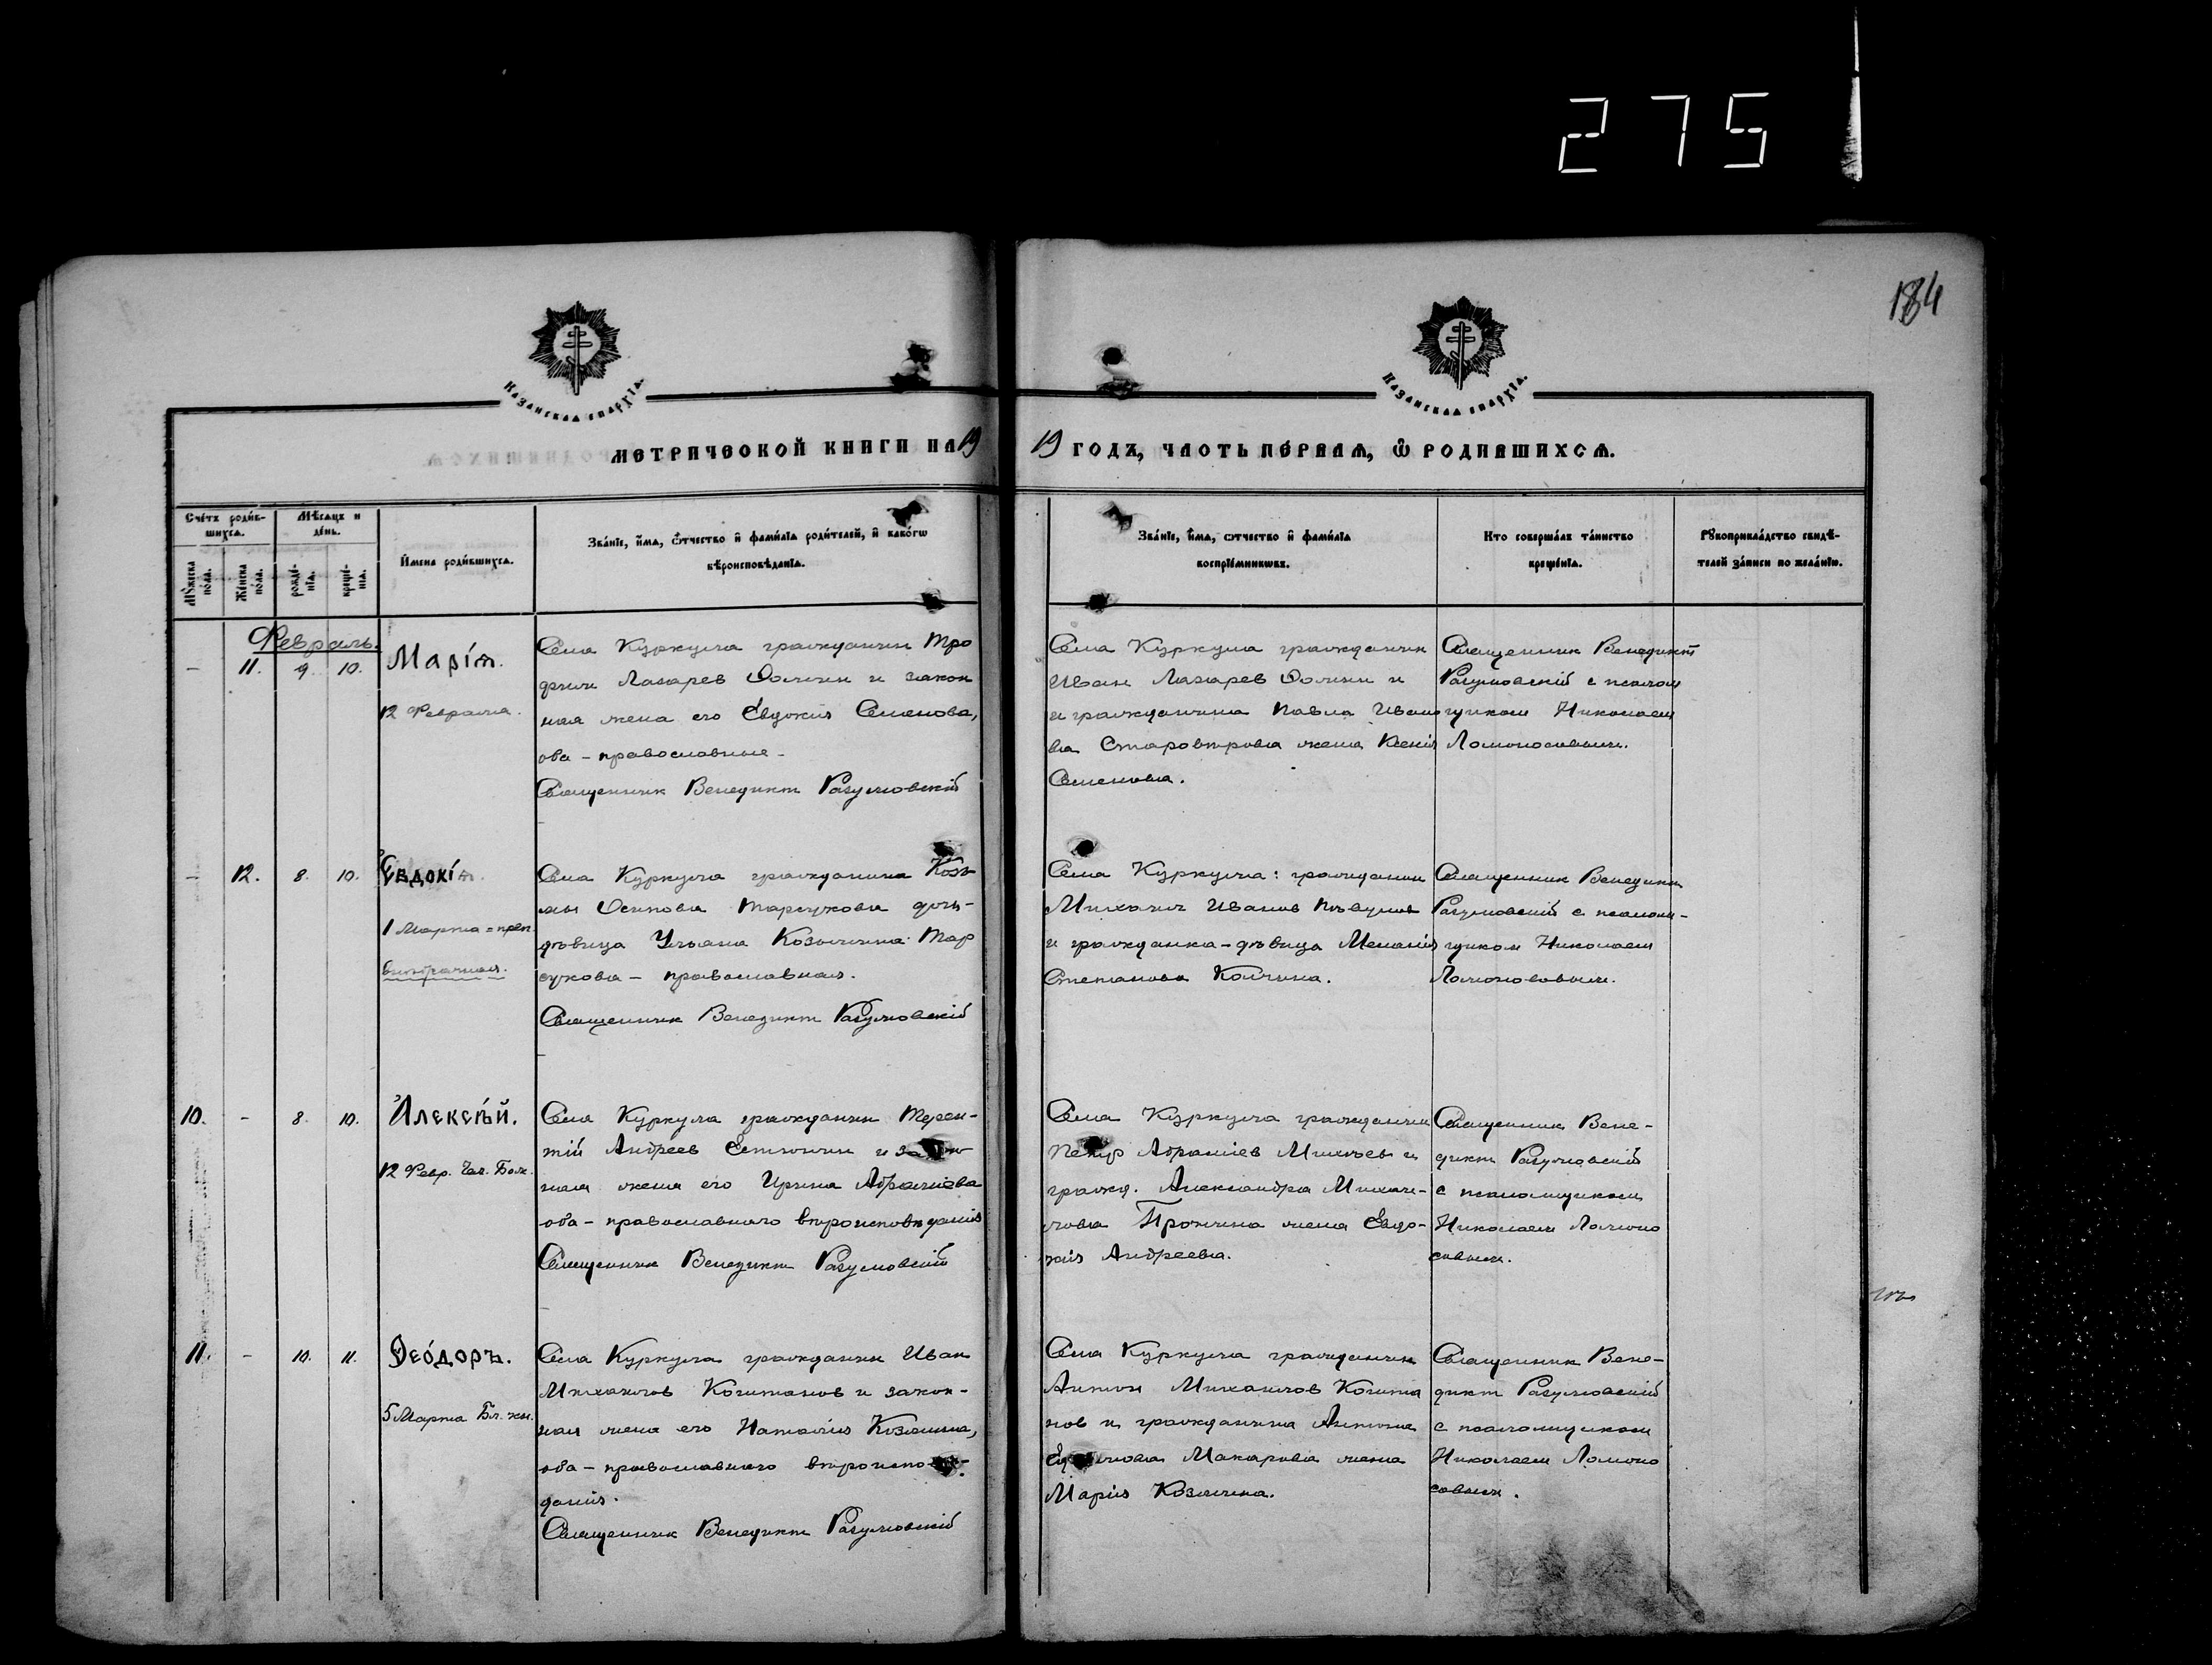 275
184
Казанская епархія.
Казанская епархія.
МЕТРИЧЕСКОЙ КНИГИ НА 19
19 ГОДЪ, ЧАСТЬ ПЕ́РВАЯ, Ѽ РОДИВШИХСѦ.
Сче́тъ роди́вшихсѧ.
Мѣсяцъ и де́нь.
Му́жеска по́ла.
Же́нска по́ла.
рожде́нїѧ.
креще́нїѧ.
И́мена роди́вшихсѧ.
Зва́нїе, и́мѧ, о́тчество и҆ фами́лїѧ роди́телей, и҆ како́гѡ
вѣроисповѣ́данїѧ.
Зва́нїе, и́мѧ, о́тчество и҆ фами́лїѧ
воспрїе́мникѡвъ.
Кто соверша́лъ та́инство
креще́нїѧ.
Рꙋкоприкла́дство свидѣ́-
телей за́писи по жела́нїю.
Февраль.
- 11. 9. 10.
Марі́ѧ.
12 Февраля.
Села Куркуля гражданин Тро
фим Лазарев Долгин и закон
ная жена его Евдокия Семенова,
оба - православные -
Священник Венедикт Разумовскій
Села Куркуля гражданин
Иван Лазарев Долгин и
и гражданина Павла Ивано
ва жена Ксенія
Семенова.
Священник Венедикт
Разумовскій с псалом
щиком Николаем
Ломоносовым.
- 12. 8. 10.
Евдокі́ѧ.
1 Марта = преп.
Села Куркуля гражданина Козь
мы Осипова дочь-
дѣвица Ульяна Козьмина
- православная.
Священник Венедикт Разумовскій
Села Куркуля: гражданин
Михаил Иванов
и гражданка - дѣвица Меланія
Степанова
Священник Венедикт
Разумовскій с псалом-
щиком Николаем
Ломоносовым.
10. - 8. 10.
Алексѣ́й.
12 Февр.
Села Куркуля гражданин Терен-
тій Андреев и закон
ная жена его Ирина Абрамова
оба - православного вѣроисповѣданія
Священник Венедикт Разумовскій
Села Куркуля гражданин
Петр и
гражд. Александра Михай-
лова жена Евдо-
кія Андреева.
Священник Вене-
дикт Разумовскій
с псаломщиком
Николаем Ломоно
совым.
11. - 10. 11.
Ѳео́доръ.
5 Марта Бл. кн.
Села Куркуля гражданин Иван
Михайлов и закон-
ная жена его Наталія Козмина,
оба - православного вѣроисповѣ-
данія.
Священник Венедикт Разумовскій
Села Куркуля гражданин
Антон Михайлов
нов и гражданина Антона
Макарова жена
Марія Козмина.
Священник Вене-
дикт Разумовскій
с псаломщиком
Николаем Ломоно
совым.